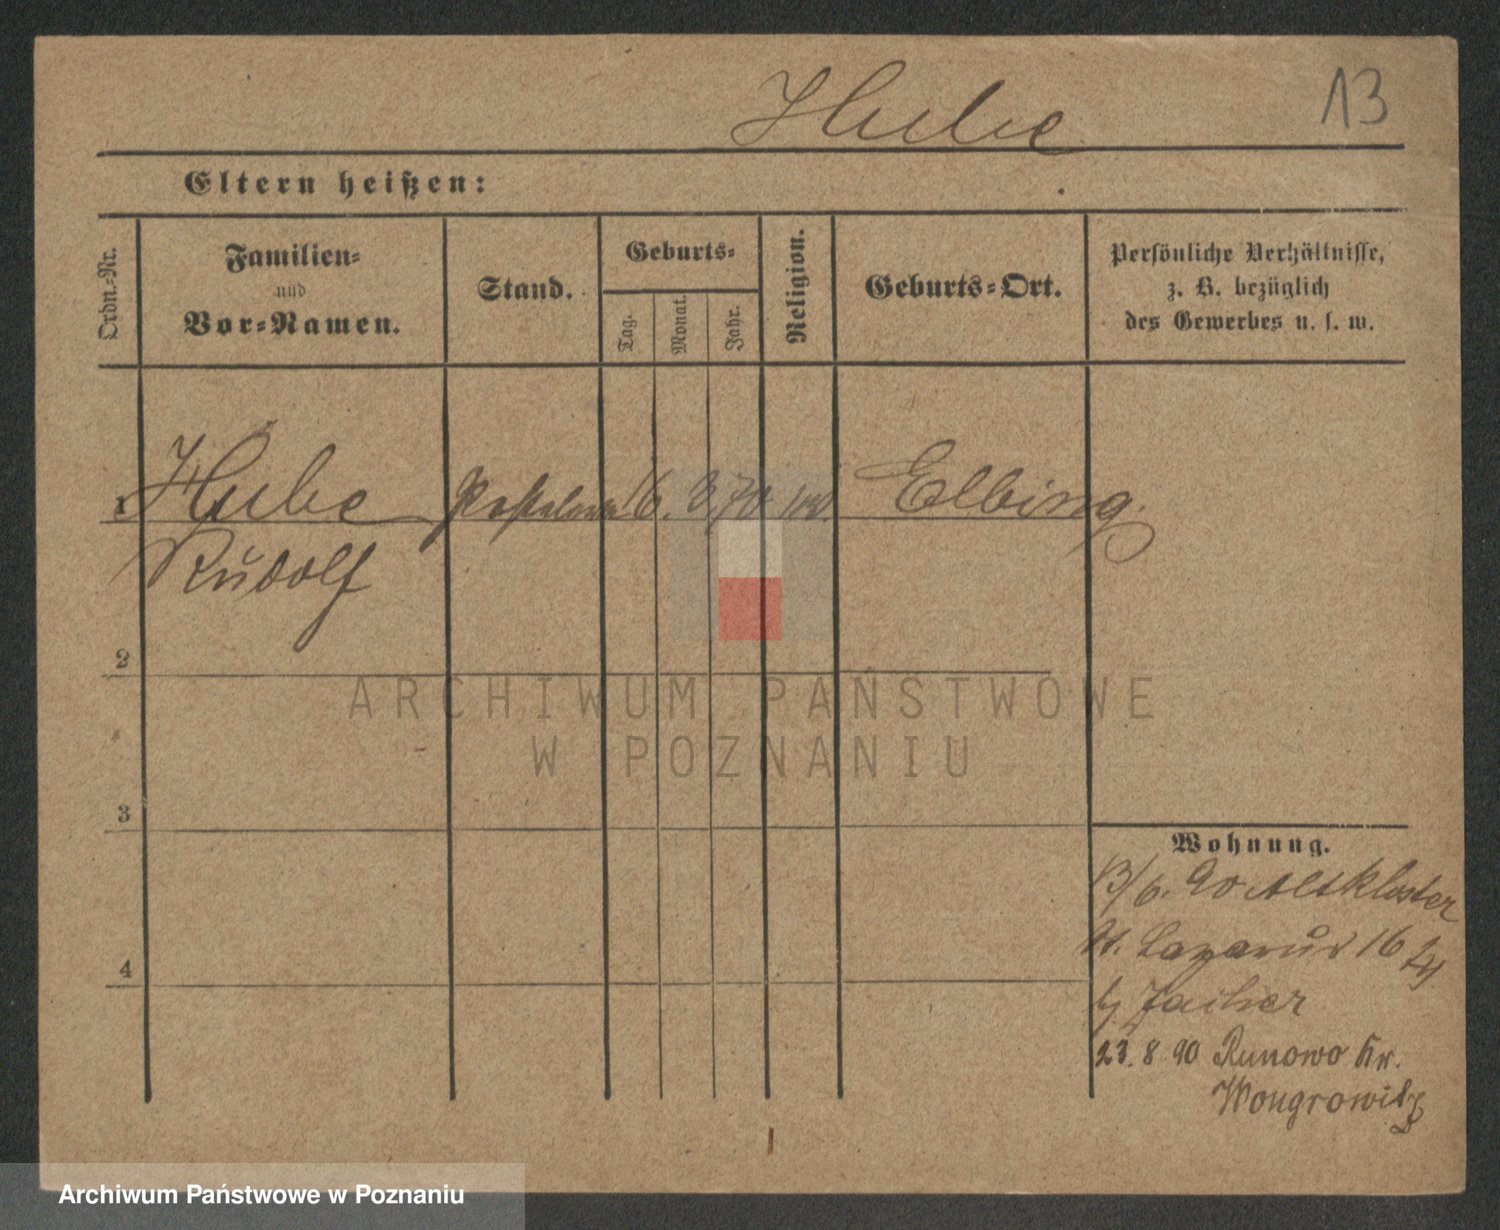 Hube 13
Eltern heißen:
Ordn.-Nr.
Familien-
und
Vor-Namen.
Stand.
Geburts-
Tag.
Monat.
Jahr.
Religion.
Geburts-Ort.
Persönliche Verhältnisse,
z. B. bezüglich
des Gewerbes u. s. w.
1 Hube 16. 3. 70 Elbing.
Rudolf
2
3
4
Wohnung.
13/6. 90 Altkloster
St. Lazarus 16
b/
23. 8 90 Runowo Kr.
Wongrowitz
ARCHIWUM PAŃSTWOWE
W POZNANIU
Archiwum Państwowe w Poznaniu